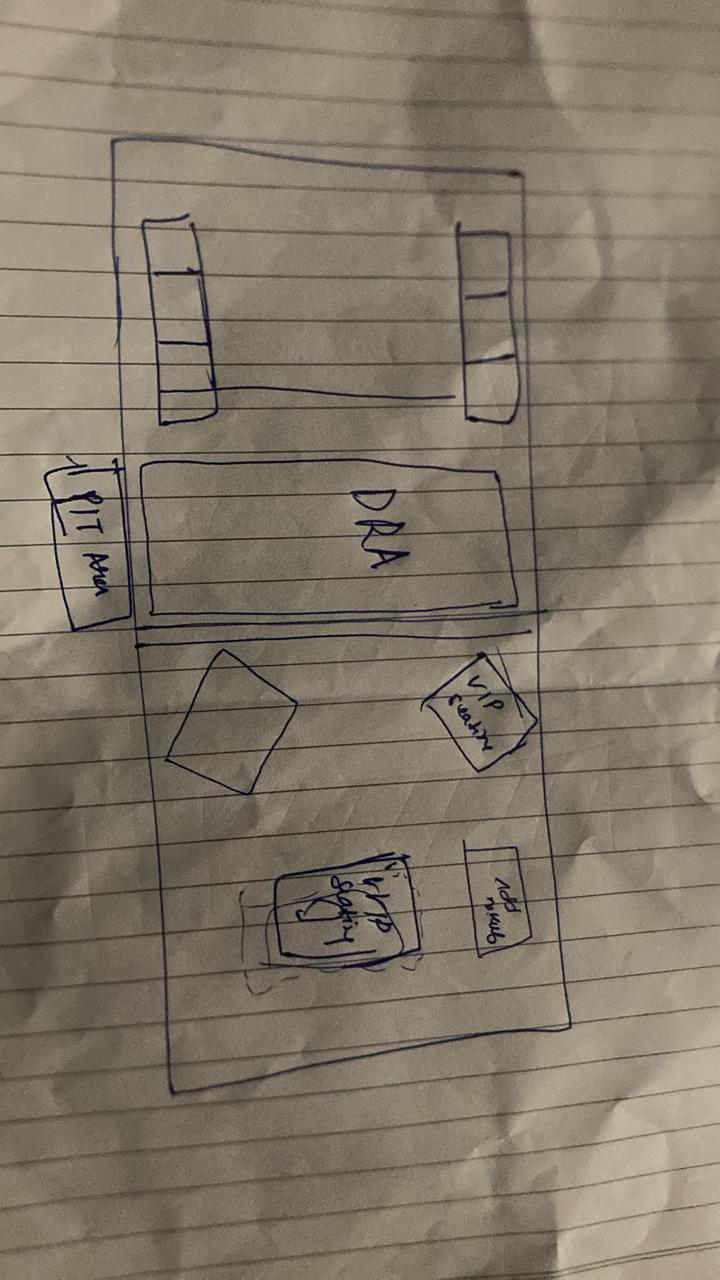 PIT Area
DRA
VIP
Seating
VIP
Seating